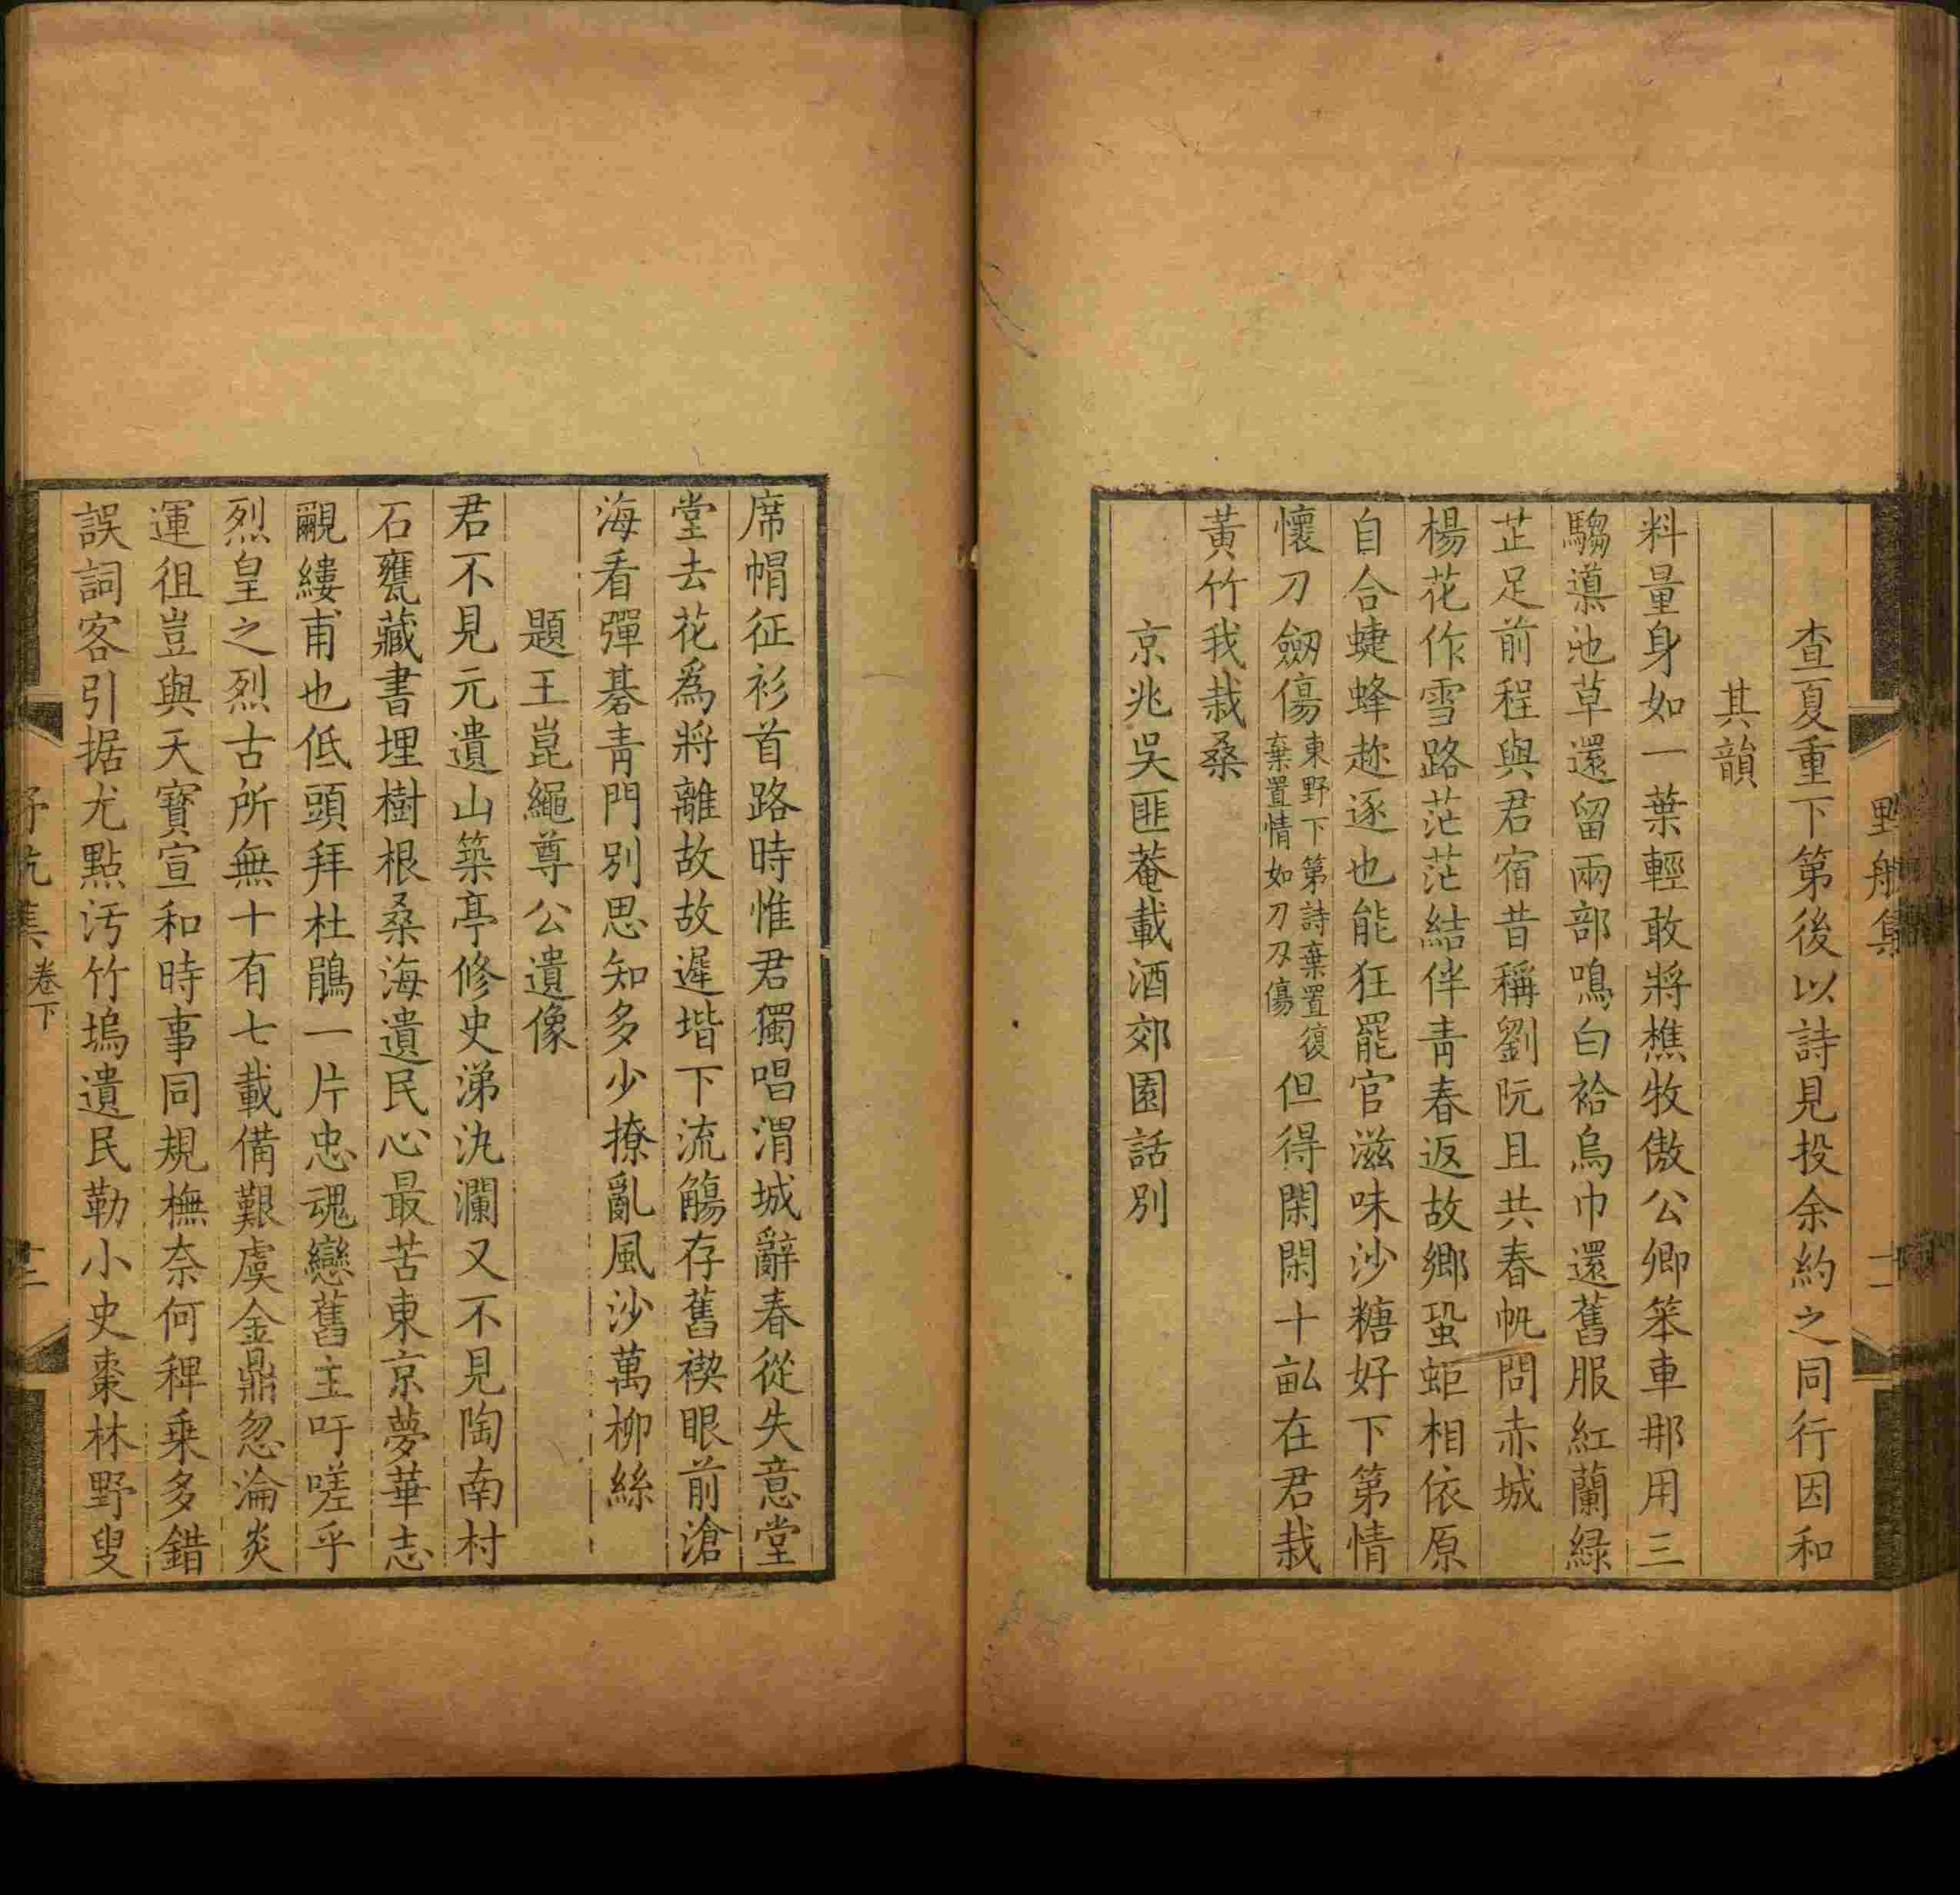 查夏重下第後以詩見投余約之同行因和
其韻
料量身如一葉輕敢將樵牧傲公卿笨車那用三
騶導池草還留兩部鳴白袷烏巾還舊服紅蘭綠
芷足前程與君宿昔稱劉阮且共春帆問赤城
楊花作雪路茫茫結伴青春返故鄉蛩蚷相依原
自合蜨蜂趂逐也能狂罷官滋味沙糖好下第情
懷刀劒傷東野下第詩棄置復棄置情如刀刃傷但得閑閑十畝在君栽
黃竹我栽桑
京兆吳匪菴載酒郊園話別
席帽征衫首路時惟君獨唱渭城辭春從失意堂
堂去花爲將離故故遲堦下流觴存舊禊眼前滄
海看彈棊青門別思知多少撩亂風沙萬柳絲
題王崑繩尊公遺像
君不見元遺山築亭修史涕汍瀾又不見陶南村
石甕藏書埋樹根桑海遺民心最苦東京夢華志
覼縷甫也低頭拜杜鵑一片忠魂戀舊主吁嗟乎
烈皇之烈古所無十有七載備艱虞金鼎忽淪炎
運徂豈與天寶宣和時事同規橅奈何稗乗多錯
誤詞客引据尤點汚竹塢遺民勒小史棗林野叟
卷下